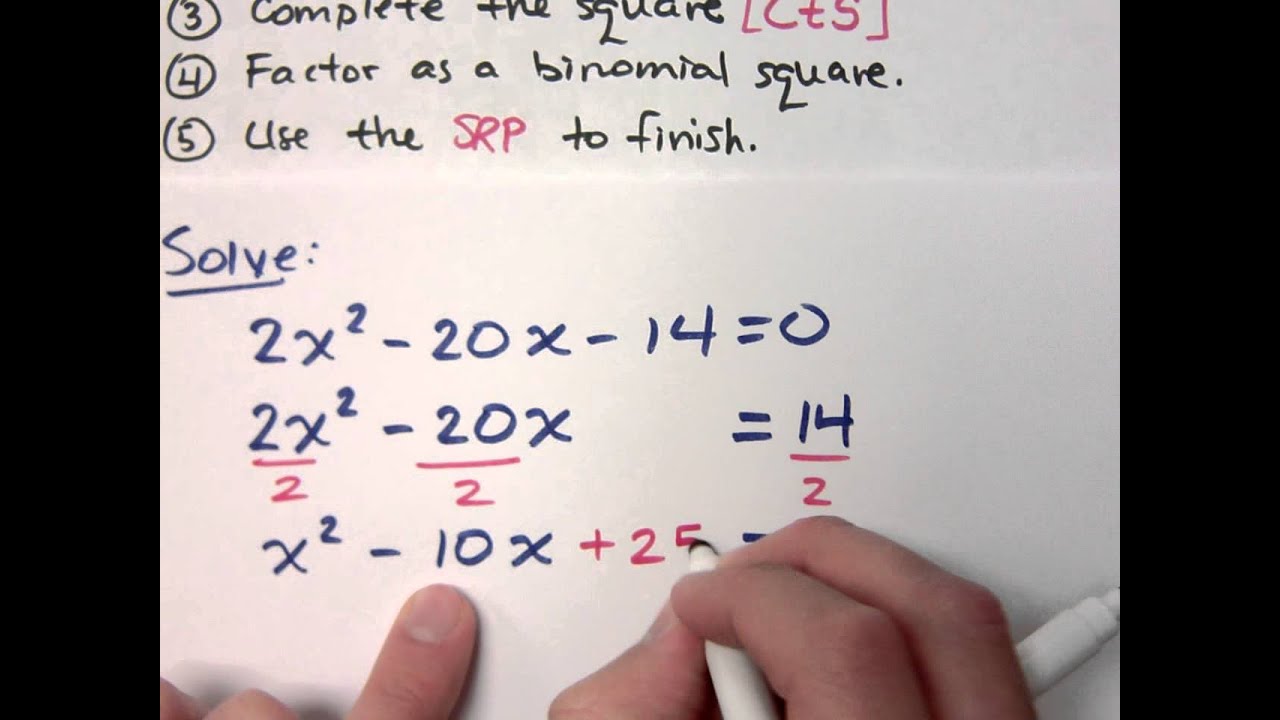 ③ Complete the square [CtS]
④ Factor as a binomial square.
⑤ Use the SRP to finish.
Solve:
2x² - 20x - 14 = 0
2x² - 20x = 14
2 2 2
x² - 10x + 25 =